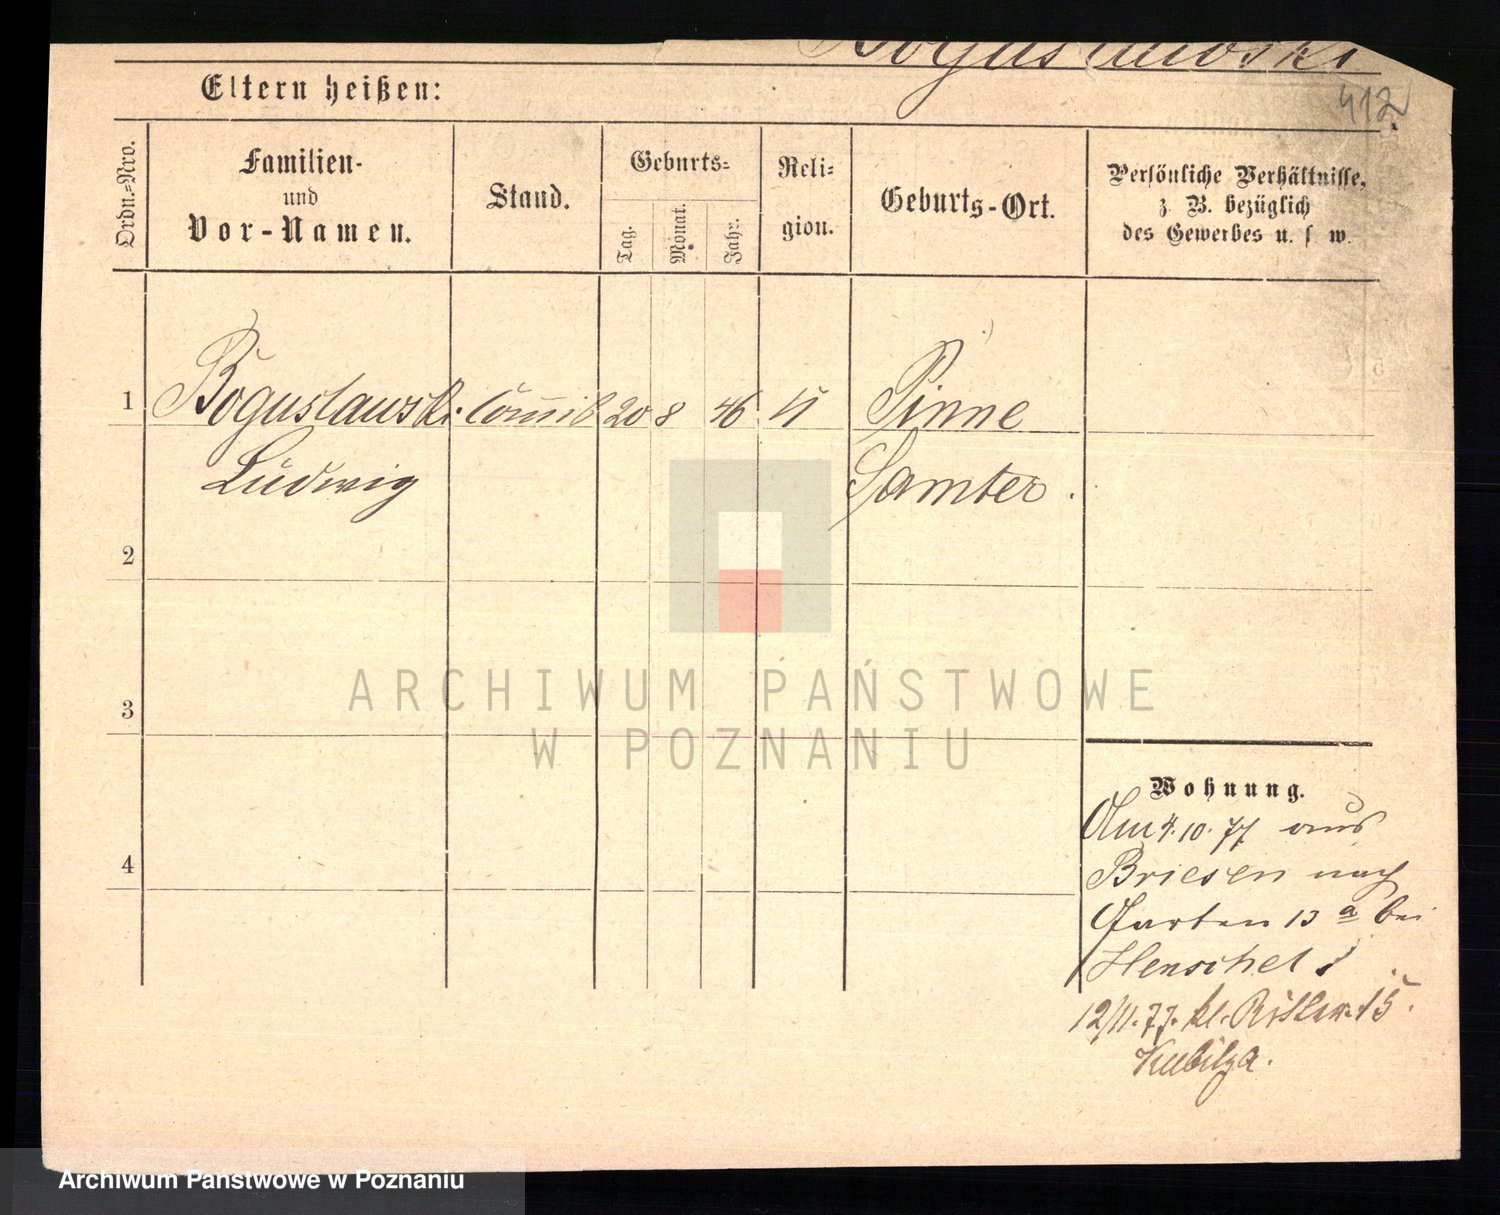 Boguslawski
412
Eltern heißen:
Ordn.=Nro.
Familien-
und
Vor-Namen.
Stand.
Geburts=
Tag.
Monat.
Jahr.
Reli=
gion.
Geburts-Ort.
Persönliche Verhältnisse,
z. B. bezüglich
des Gewerbes u. s w.
1 Boguslawski. Commis 20 8 46 Pinne
Ludwig Samter.
2
3
4
ARCHIWUM PAŃSTWOWE
W POZNANIU
Wohnung.
Am 4. 10. 77 aus
Briesen nach
Garten 13 a bei
Henschel
12/11. 77. kl. Ritterstr. 15.
Kubitza.
Archiwum Państwowe w Poznaniu